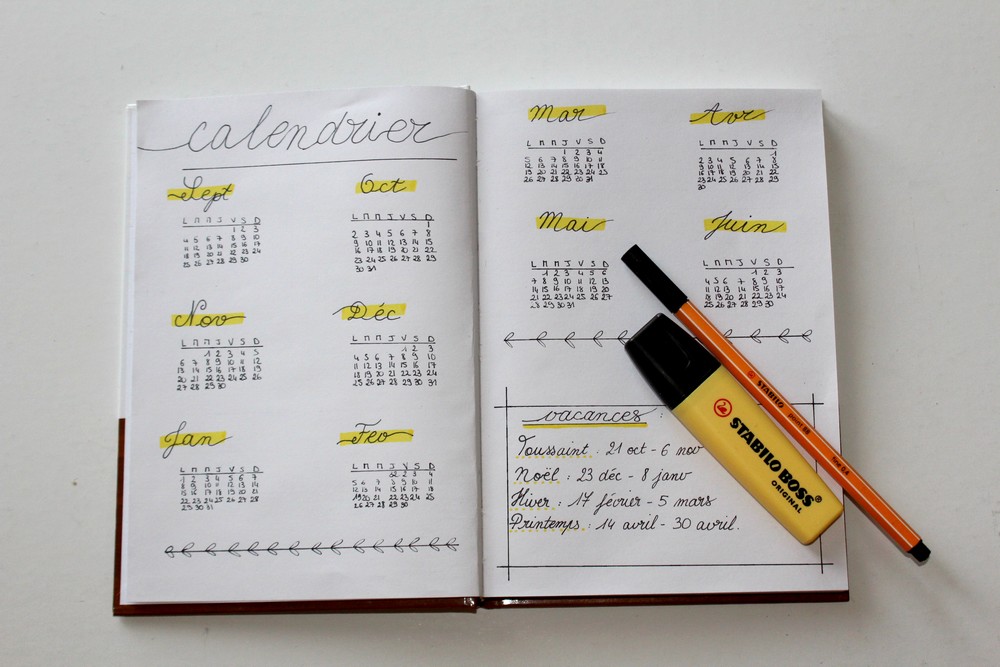 calendrier
Sept
L M M J V S D
1 2 3
4 5 6 7 8 9 10
11 12 13 14 15 16 17
18 19 20 21 12 23 24
25 26 27 28 29 30
Oct
L M M J V S D
1
2 3 4 5 6 7 8
9 10 11 12 13 14 15
16 17 18 19 20 21 22
23 24 25 26 27 28 29
30 31
Nov
L M M J V S D
1 2 3 4 5
6 7 8 9 10 11 12
13 14 15 16 17 18 19
20 21 22 23 24 25 26
27 28 29 30
Déc
L M M J V S D
1 2 3
4 5 6 7 8 9 10
11 12 13 14 15 16 17
18 19 20 21 22 23 24
25 26 27 28 29 30 31
Jan
L M M J V S D
1 2 3 4 5 6 7
8 9 10 11 12 13 14
15 16 17 18 19 20 21
22 23 24 25 26 27 28
29 30 31
Fev
L M M J V S D
2 3 4
5 6 7 8 9 10 11
12 13 14 15 16 17 18
19 20 21 22 23 24 25
26 27 28 29 30
Mar
L M M J V S D
1 2 3 4
5 6 7 8 9 10 11
12 13 14 15 16 17 18
19 20 21 22 23 24 25
26 27 28 29 30 31
Avr
L M M J V S D
1
2 3 4 5 6 7 8
9 10 11 12 13 14 15
16 17 18 19 20 21 22
23 24 25 26 27 28 29
30
Mai
L M M J V S D
1 2 3 4 5 6
7 8 9 10 11 12 13
14 15 16 17 18 19 20
21 22 23 24 25 26 27
28 29 30 31
Juin
L M M J V S D
1 2 3
4 5 6 7 8 9 10
11 12 13 14 15 16 17
18 19 20 21 22 23 24
25 26 27 28 29 30
vacances :
Toussaint : 21 oct - 6 nov
Noël : 23 déc - 8 janv
Hiver : 17 février - 5 mars
Printemps : 14 avril - 30 avril.
STABILO BOSS®
ORIGINAL
STABILO point 88
fine 0,4